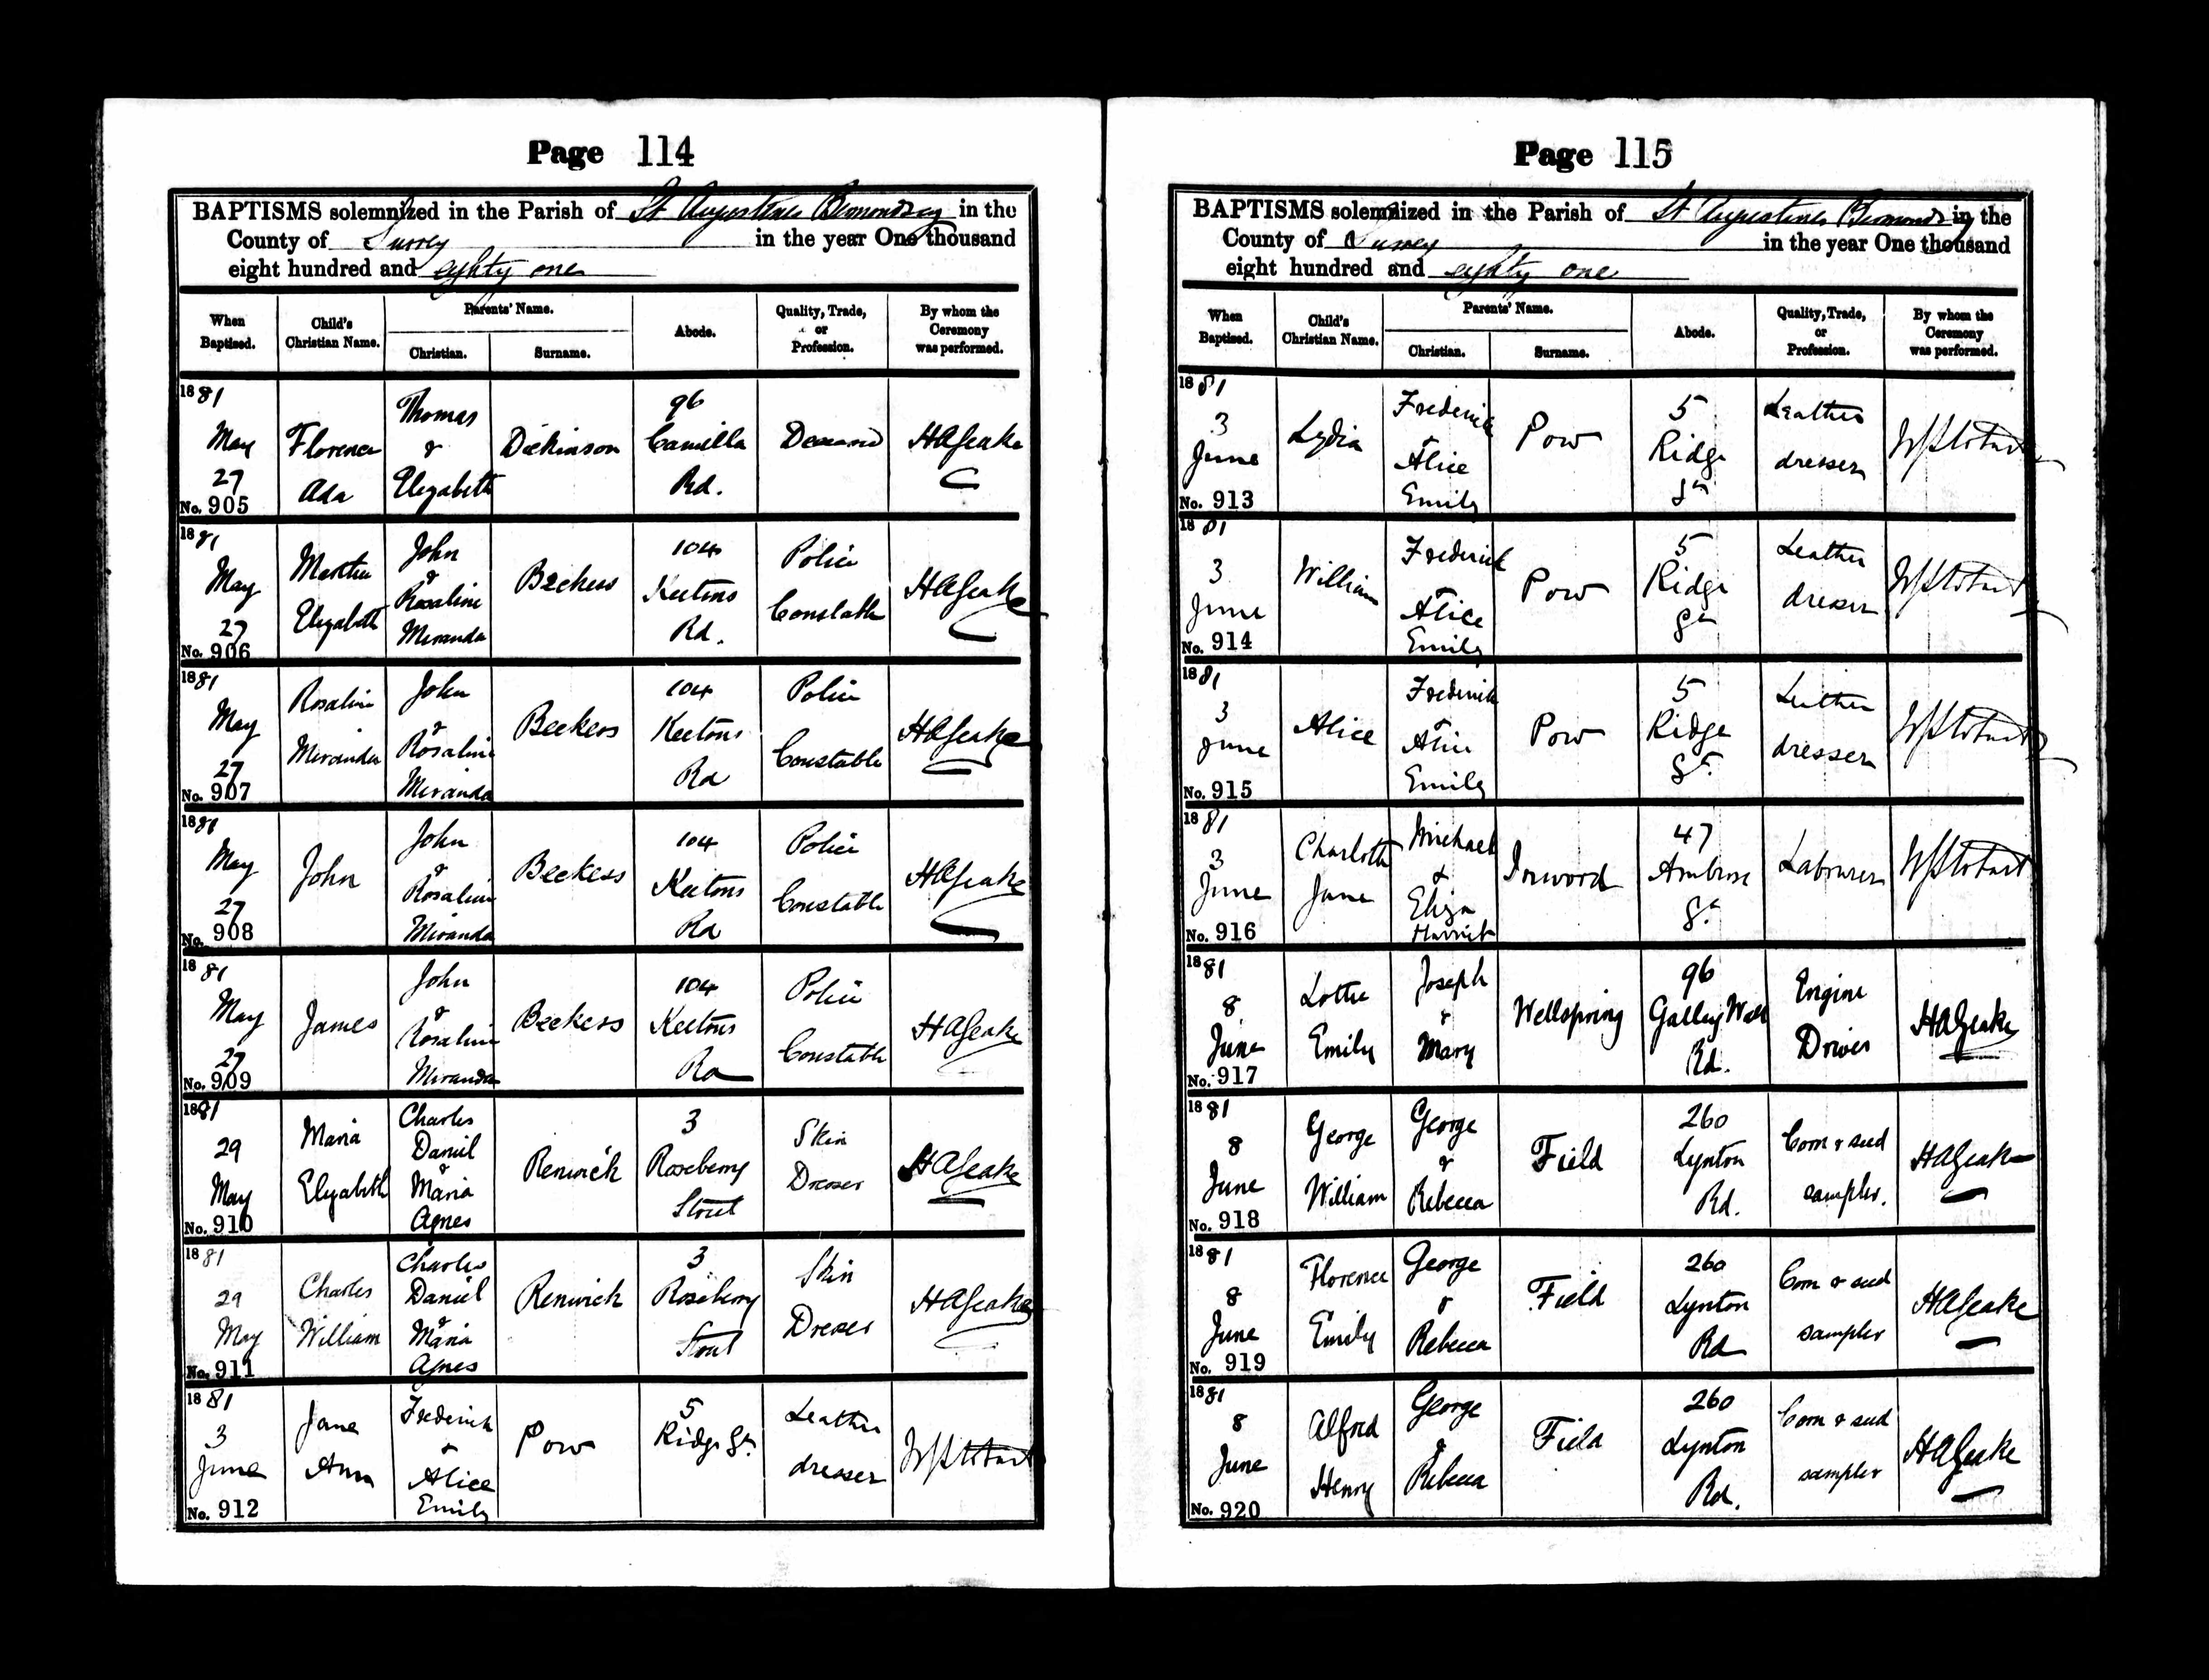 Page 114
BAPTISMS solemnized in the Parish of St Augustines Bermondsey in the
County of Surrey in the year One thousand
eight hundred and eighty one
When Baptized. Child's Christian Name. Parents' Name. Christian. Surname. Abode. Quality, Trade, or Profession. By whom the Ceremony was performed.
1881 May 27 No. 905 Florence Ada Thomas & Elizabeth Dickinson 96 Camilla Rd. Deceased HAGeake
1881 May 27 No. 906 Martha Elizabeth John & Rosaline Miranda Beckess 104 Keetons Rd. Police Constable HAGeake
1881 May 27 No. 907 Rosaline Miranda John & Rosaline Miranda Beckess 104 Keetons Rd Police Constable HAGeake
1881 May 27 No. 908 John John & Rosaline Miranda Beckess 104 Keetons Rd Police Constable HAGeake
1881 May 27 No. 909 James John & Rosaline Miranda Beckess 104 Keetons Rd Police Constable HAGeake
1881 29 May No. 910 Maria Elizabeth Charles Daniel & Maria Agnes Renwick 3 Roseberry Street Skin Dresser HAGeake
1881 29 May No. 911 Charles William Charles Daniel & Maria Agnes Renwick 3 Roseberry Street Skin Dresser HAGeake
1881 3 June No. 912 Jane Ann Frederick & Alice Emily Pow 5 Ridge St. Leather dresser
Page 115
BAPTISMS solemnized in the Parish of St Augustines Bermondsey in the
County of Surrey in the year One thousand
eight hundred and eighty one
When Baptized. Child's Christian Name. Parents' Name. Christian. Surname. Abode. Quality, Trade, or Profession. By whom the Ceremony was performed.
1881 3 June No. 913 Lydia Frederick Alice Emily Pow 5 Ridge St Leather dresser
1881 3 June No. 914 William Frederick Alice Emily Pow 5 Ridge St Leather dresser
1881 3 June No. 915 Alice Frederick Alice Emily Pow 5 Ridge St. Leather dresser
1881 3 June No. 916 Charlotte Jane Michael & Eliza Harriet Inwood 47 Ambrose St. Labourer
1881 8 June No. 917 Lottie Emily Joseph & Mary Wellspring 96 Galley Wall Rd. Engine Driver HAGeake
1881 8 June No. 918 George William George & Rebecca Field 260 Lynton Rd. Corn & seed sampler. HAGeake
1881 8 June No. 919 Florence Emily George & Rebecca Field 260 Lynton Rd Corn & seed sampler HAGeake
1881 8 June No. 920 Alfred Henry George & Rebecca Field 260 Lynton Rd. Corn & seed sampler HAGeake